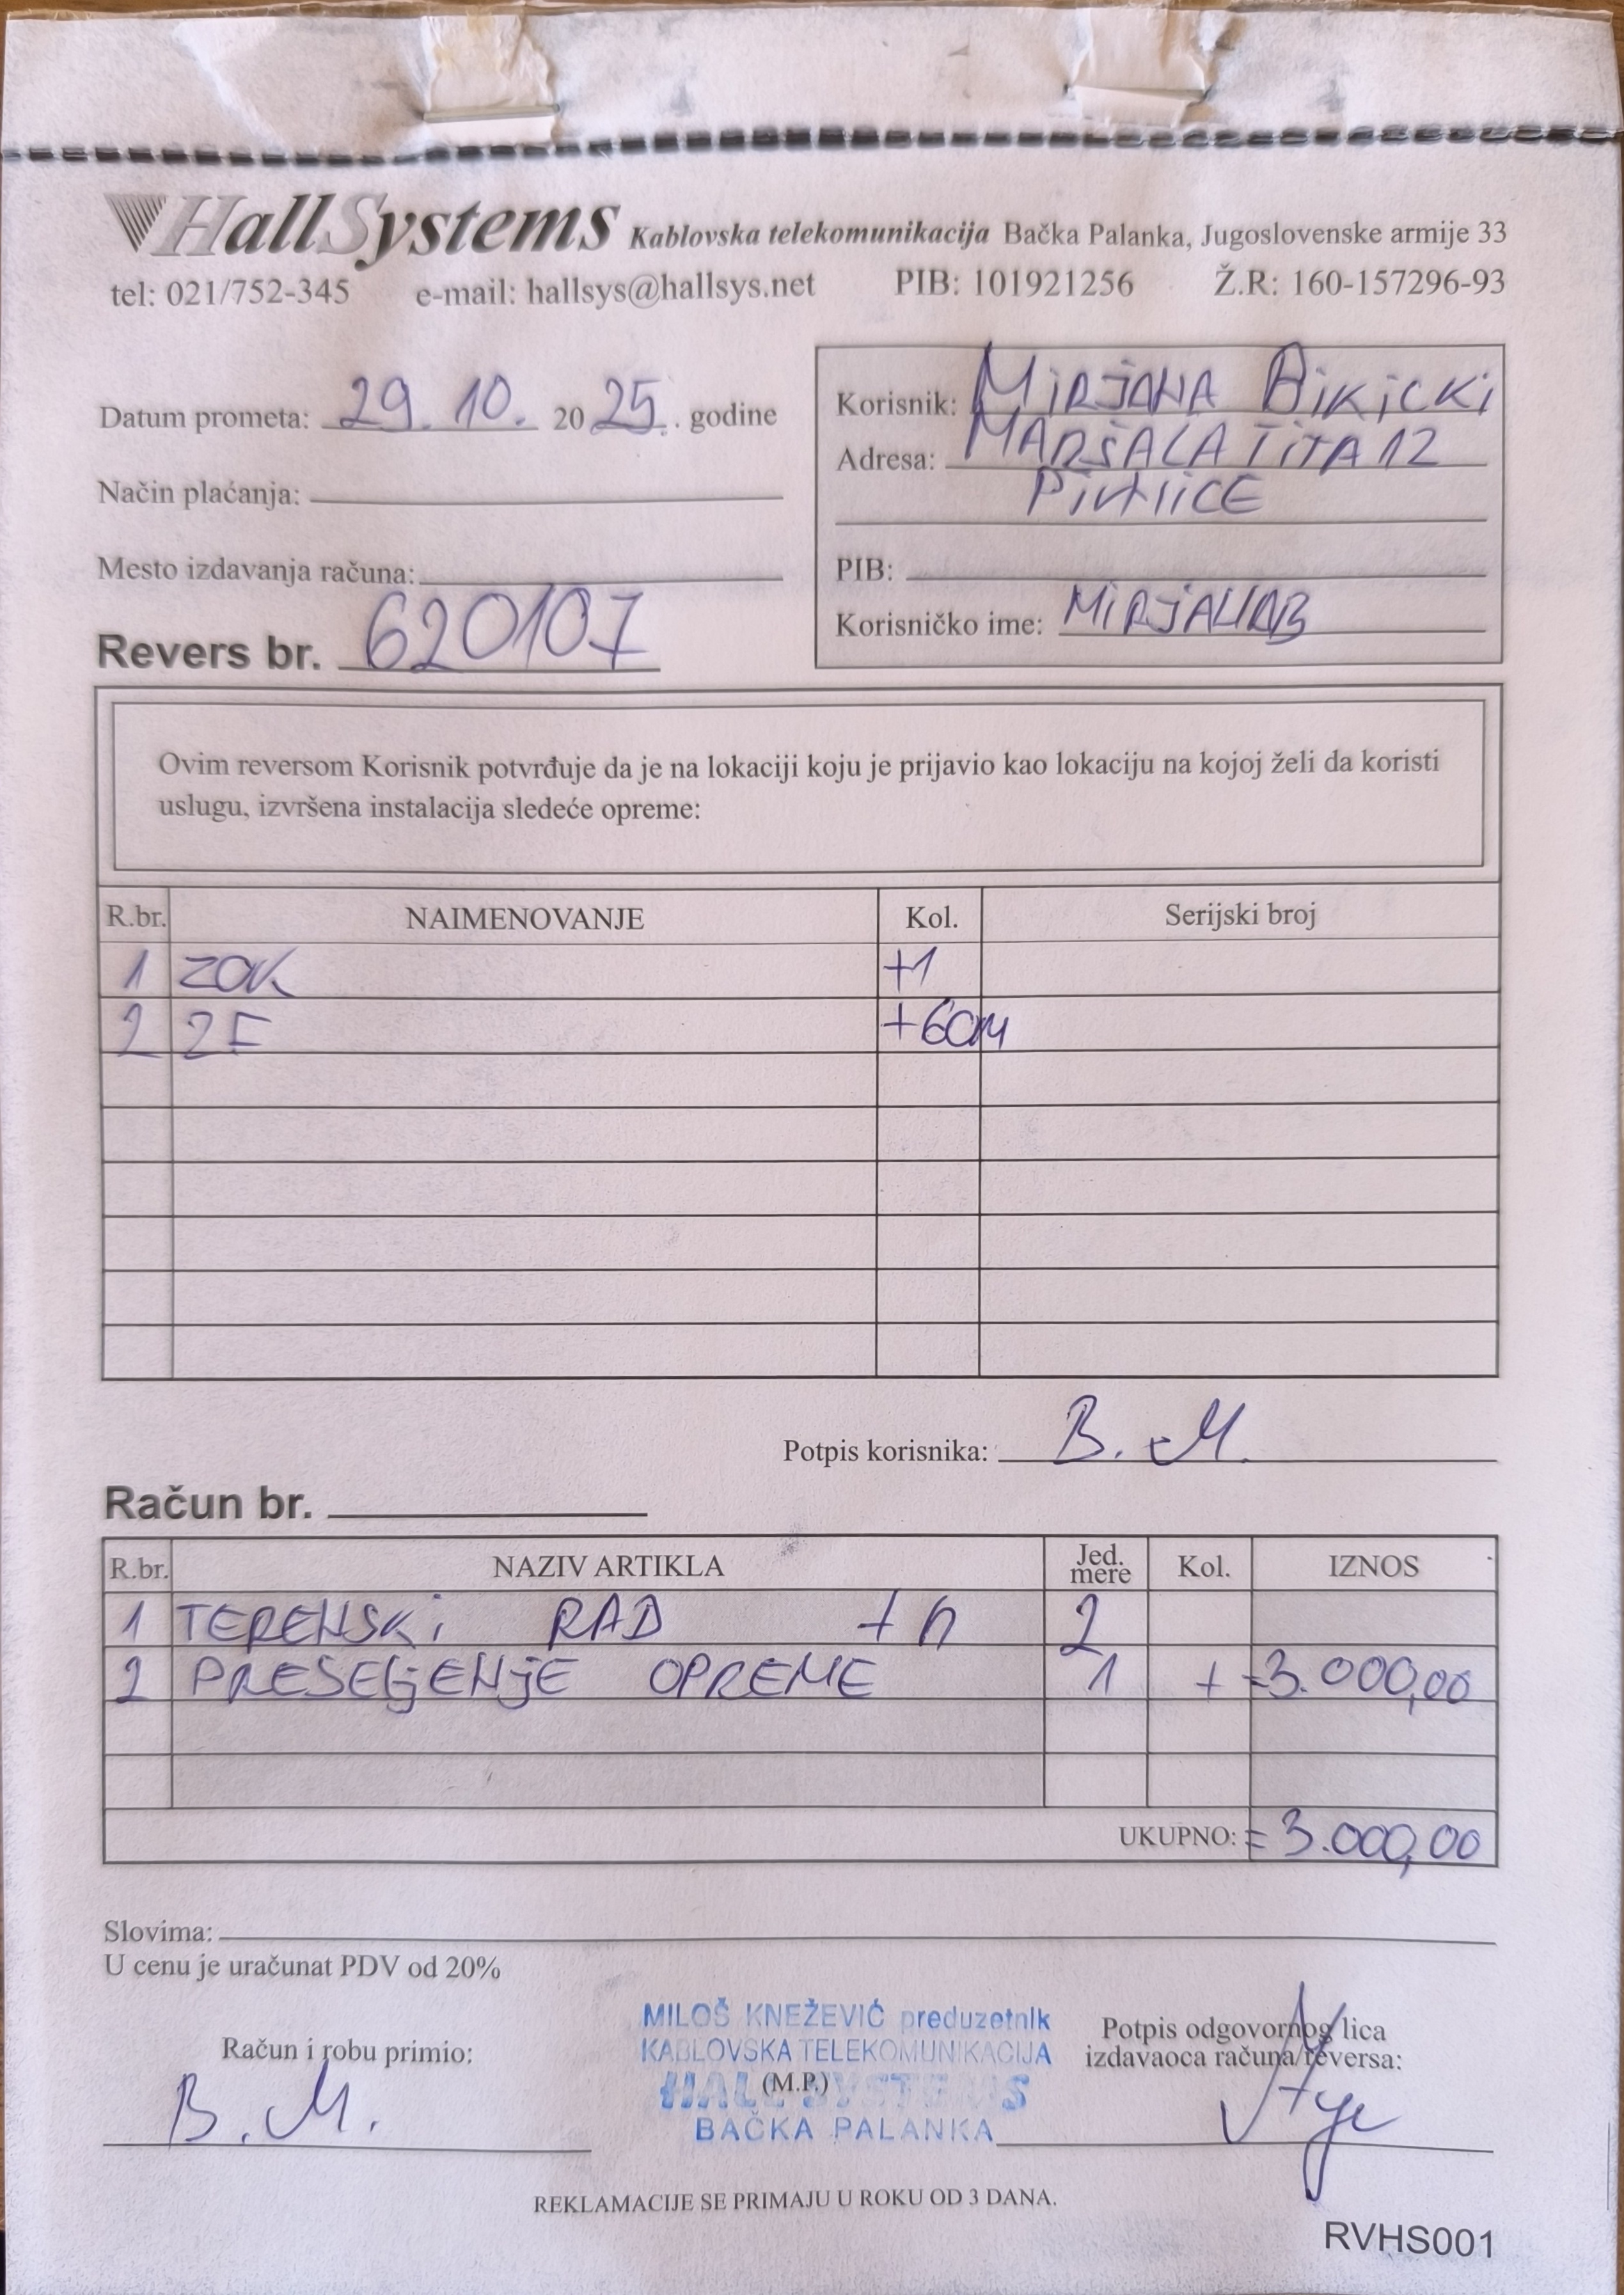 HallSystems Kablovska telekomunikacija Bačka Palanka, Jugoslovenske armije 33
tel: 021/752-345 e-mail: hallsys@hallsys.net PIB: 101921256 Ž.R: 160-157296-93
Datum prometa: 29. 10. 2025. godine
Način plaćanja:
Mesto izdavanja računa:
Revers br. 620107
Korisnik: MIRJANA BIKICKI
Adresa: MARŠALA TITA 12
PIVNICE
PIB:
Korisničko ime: MIRJANAB
Ovim reversom Korisnik potvrđuje da je na lokaciji koju je prijavio kao lokaciju na kojoj želi da koristi
uslugu, izvršena instalacija sledeće opreme:
R.br. NAIMENOVANJE Kol. Serijski broj
1 ZOK +1
2 2F +60M
Potpis korisnika: B. M.
Račun br.
R.br. NAZIV ARTIKLA Jed. mere Kol. IZNOS
1 TERENSKI RAD + 2
2 PRESELJENJE OPREME 1 + =3.000,00
UKUPNO: =3.000,00
Slovima:
U cenu je uračunat PDV od 20%
Račun i robu primio:
B. M.
MILOŠ KNEŽEVIĆ preduzetnik
KABLOVSKA TELEKOMUNIKACIJA
(M.P.)
HALL SYSTEMS
BAČKA PALANKA
Potpis odgovornog lica
izdavaoca računa/reversa:
REKLAMACIJE SE PRIMAJU U ROKU OD 3 DANA.
RVHS001